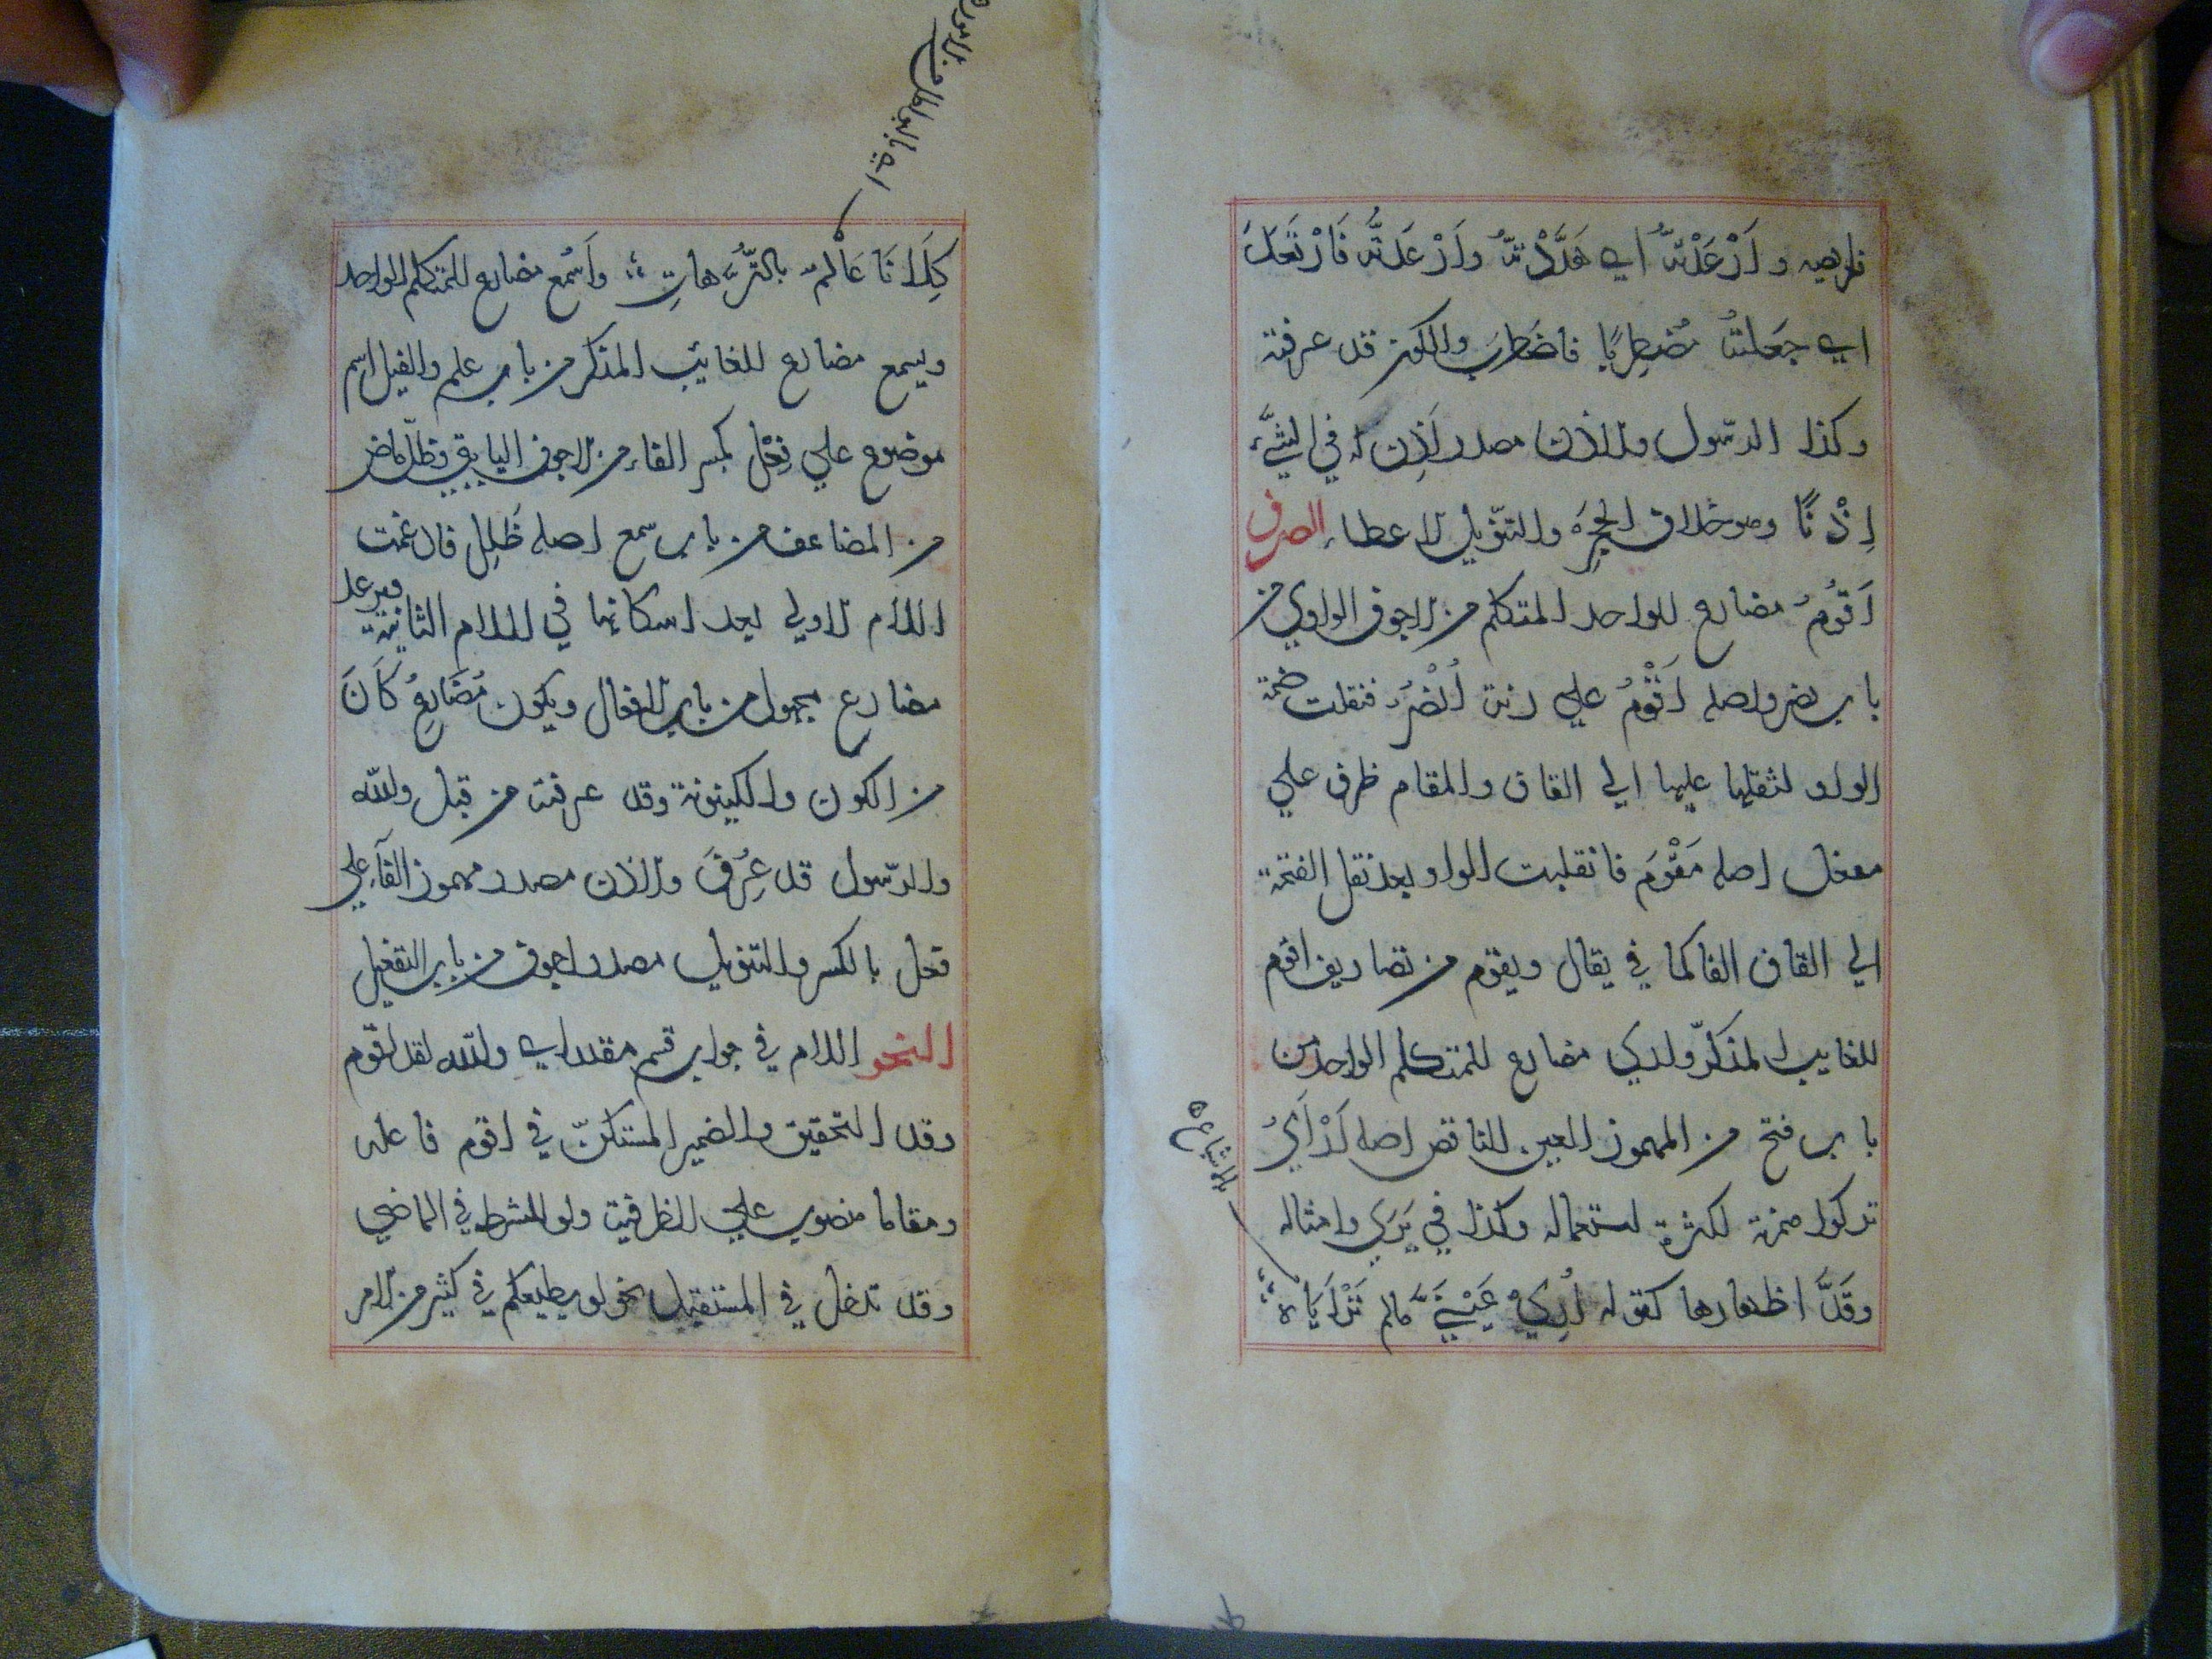 فرايصه وَاَرْعَدْتُهُ اي هَدَّدْتُهُ وَاَرْعَدْتُهُ فَارْتَعَدَ
اي جَعَلتُهُ مُضطرِبًا فاضطرَبَ والكون قد عرفته
وكذا الرّسول والاذن مصدر اَذِنَ له في الشَّيْء
اِذْنًا وهو خلاف الحَجر والتنويل الاعطاء الصرف
اَقُومُ مضارع للواحد المتكلم من الاجوف الواوي من
باب نصر واصله اَقْوُمُ علي زنة اَنْصُرُ فنقلت ضمة
الواو لثقلها عليها الي القاف والمقام ظرف علي
مفعل اصله مَقْوَم فانقلبت الواو بعد نقل الفتحة
الي القاف الفا كما في يقال ويقوم من تصاريف اقوم
للغايب المذكّر واري مضارع للمتكلم الواحد من
باب فتح من المهموز العين الناقص اصله اَرْاَيُ
تركوا همزته لكثرة استعماله وكذا في يَرَي وامثاله
وقَلَّ اظهارها كقوله اُرِيْ عَيْنَيَّ مالم تَرْاَيَاهُ
بالاشباع
كِلَانَا عَالِمٌ بالتُّرَّهاتِ وَاَسْمَع مضارع للمتكلم الواحد
اي بالبواطل من الامور
ويسمع مضارع للغايب المذكر من باب علم والفيل اسم
موضوع علي فِعْل بكسر الفاء من الاجوف اليايي وظلّ ماض
من المضاعف من باب سمع اصله ظَلِلَ فادغمت
اللام الاولي بعد اسكانها في اللام الثانية ويرعد
مضارع مجهول من باب الافعال ويكون مُضَارِعُ كَانَ
من الكون والكينونة وقد عرفته من قبل والله
والرّسول قد عُرِفَ والاذن مصدر مهموز الفاء علي
فعل بالكسر والتنويل مصدر اجوف من باب التفعيل
النحو اللام في جواب قسم مقدر اي والله لقد اقوم
وقد التحقيق والضمير المستكنّ في اقوم فاعله
ومقاما منصوب علي الظرفية ولو للشرط في الماضي
وقد تدخل في المستقبل نحو لو يطيعكم في كثير من الامر